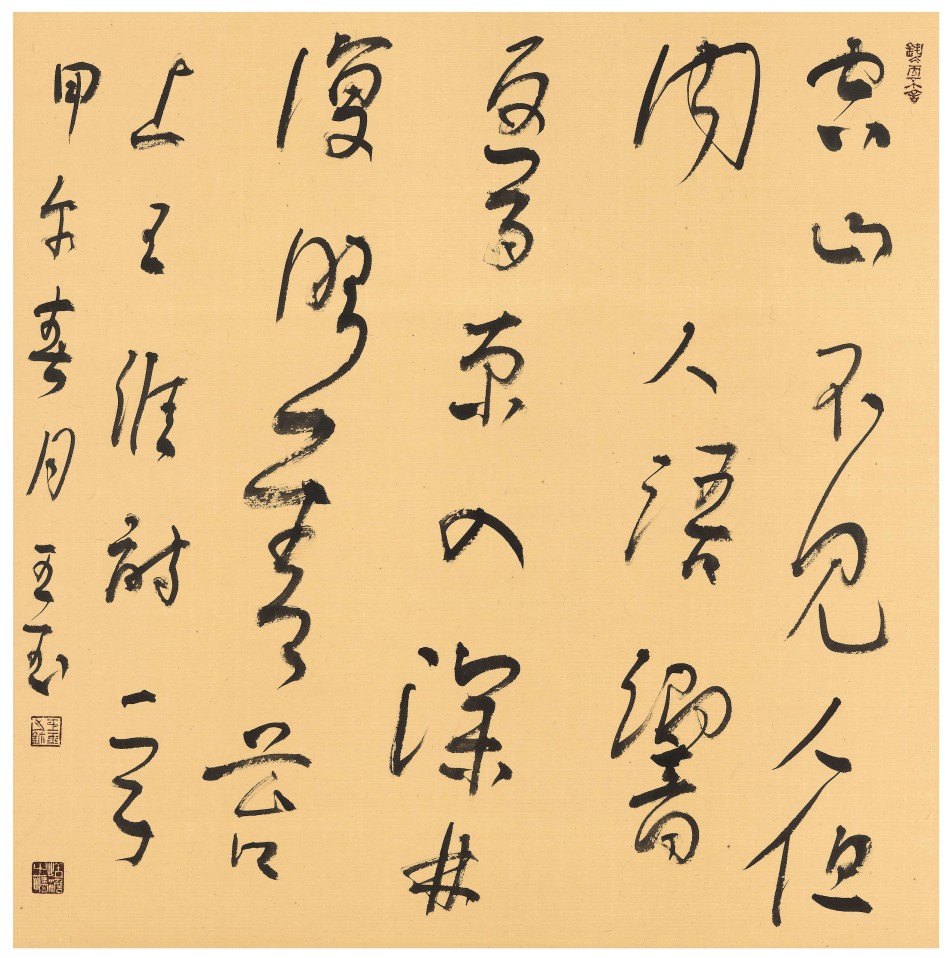 空山不見人但
聞人語響
返景入深林
復照青苔
上王維詩一首
甲午春月王玉